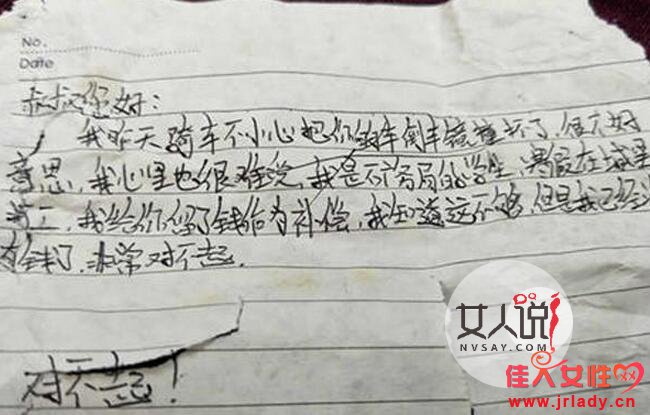 No.
Date
叔叔您好:
我昨天骑车不小心把你的车倒车镜撞坏了,很不好
意思,我心里也很难受,我是矿务局的学生,寒假在城里
打工,我给你留了钱作为补偿,我知道这不够,但是我已经没
有钱了,非常对不起.
对不起!
女人说
NVSAY.COM
佳人女性
www.jrlady.cn